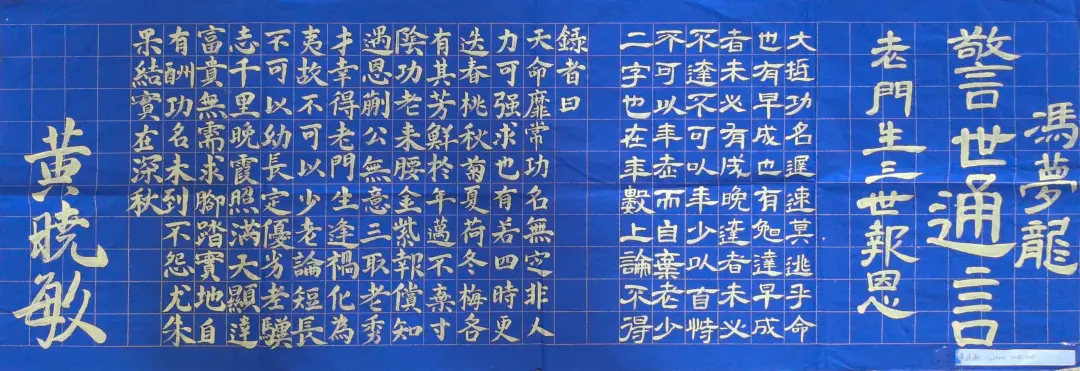 馮夢龍
警世通言
老門生三世報恩
大抵功名遲速莫逃乎命
也有早成也有晚達早成
者未必有成晚達者未必
不達不可以年少以自恃
不可以年老而自棄老少
二字也在年數上論不得
錄者曰
天命靡常功名無定非人
力可强求也有若四時更
迭春桃秋菊夏荷冬梅各
有其芳鮮於年邁不棄寸
陰功老来腰金紫報償知
遇恩蒯公無意三取老秀
才幸得老門生逢禍化為
夷故不可以少老論短長
不可以幼長定優劣老驥
志千里晚霞照滿天顯達
富貴無需求腳踏實地自
有酬功名未到不怨尤朱
果結實在深秋
黃曉敏